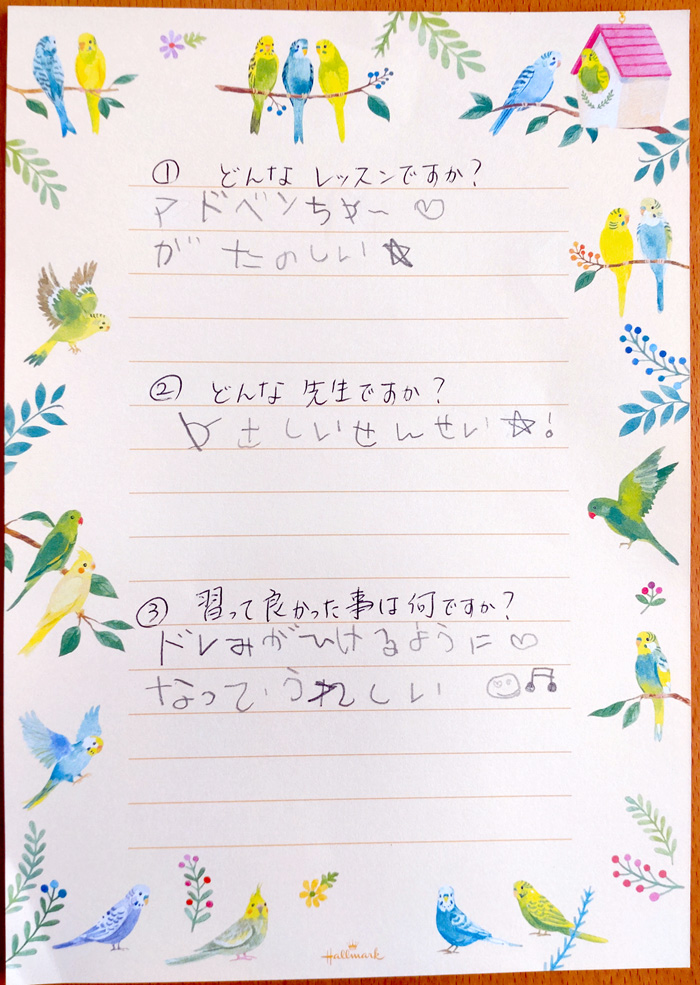 ① どんな レッスンですか?
アドベンちゃー ♡
が たのしい☆
② どんな 先生ですか?
やさしいせんせい☆!
③ 習って良かった事は何ですか?
ドレみがひけるように♡
なって、うれしい
Hallmark